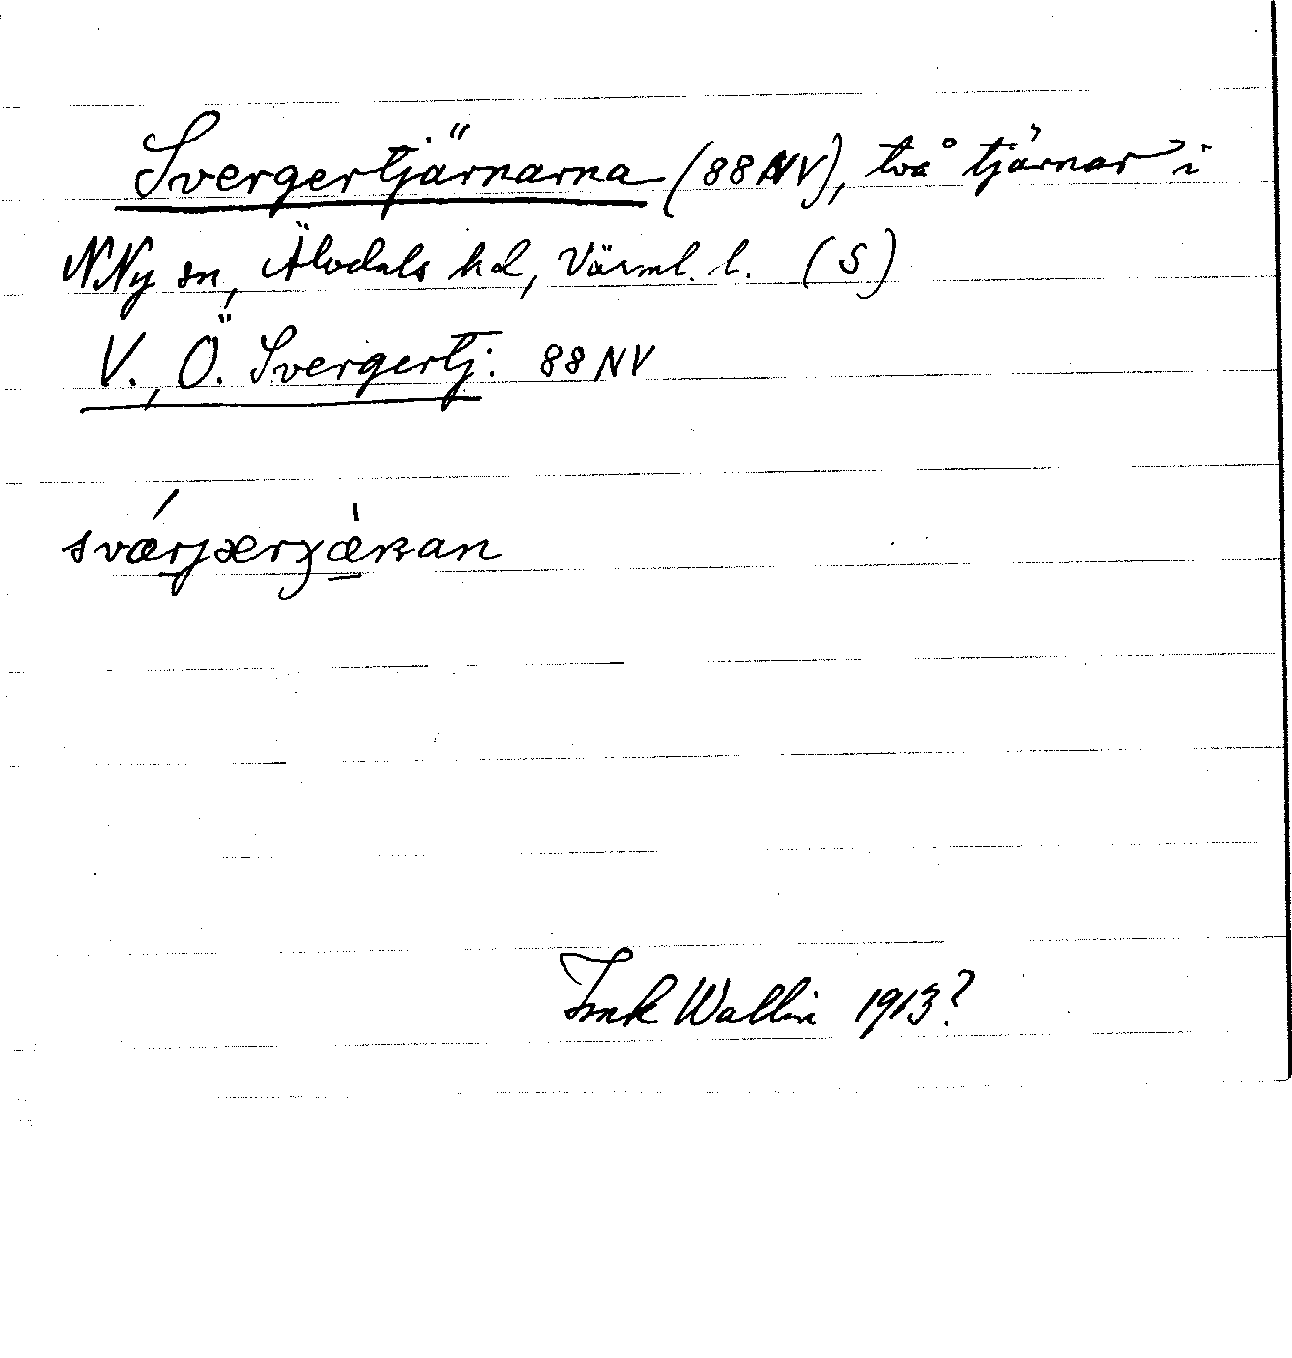 Svergertjärnarna (88 NV), två tjärnar i
NNy sn, Älvdals hd, Värml. l. (S)
V., Ö. Svergertj. 88 NV
Wallin 1913?